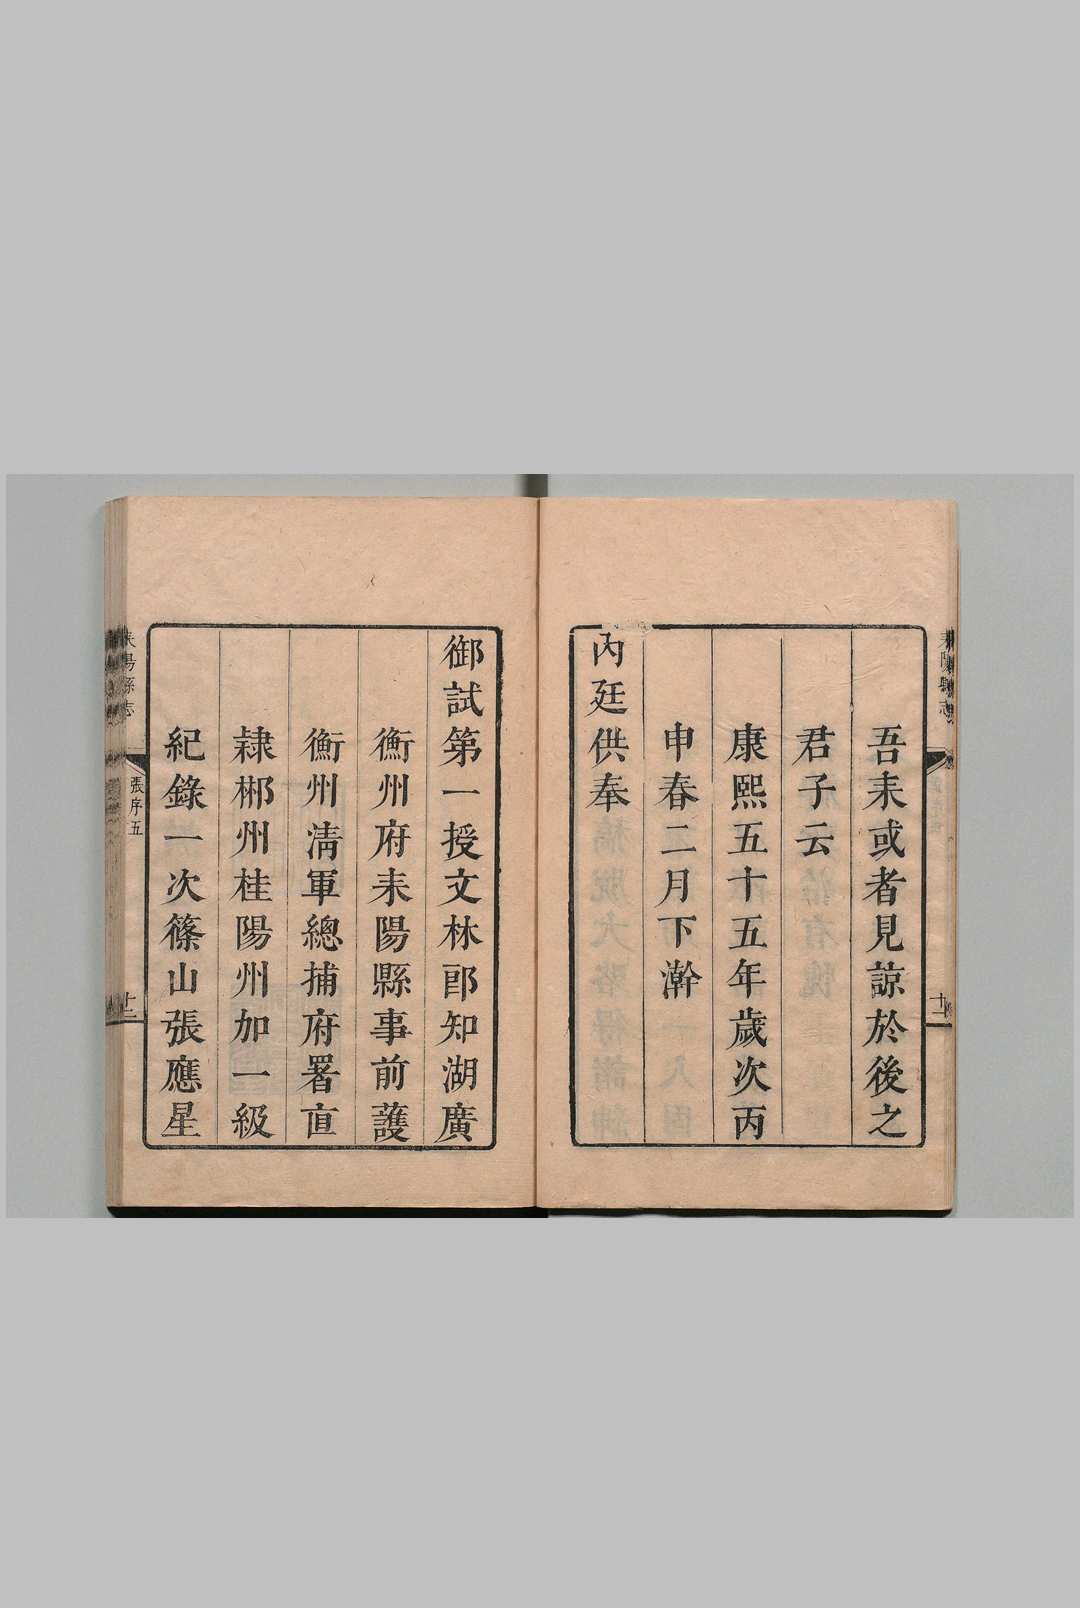 吾耒或者見諒於後之
君子云
康熙五十五年歲次丙
申春二月下澣
內廷供奉
御試第一授文林郎知湖廣
衡州府耒陽縣事前護
衡州淸軍總捕府署直
隷郴州桂陽州加一級
紀錄一次篠山張應星
張序五
十二